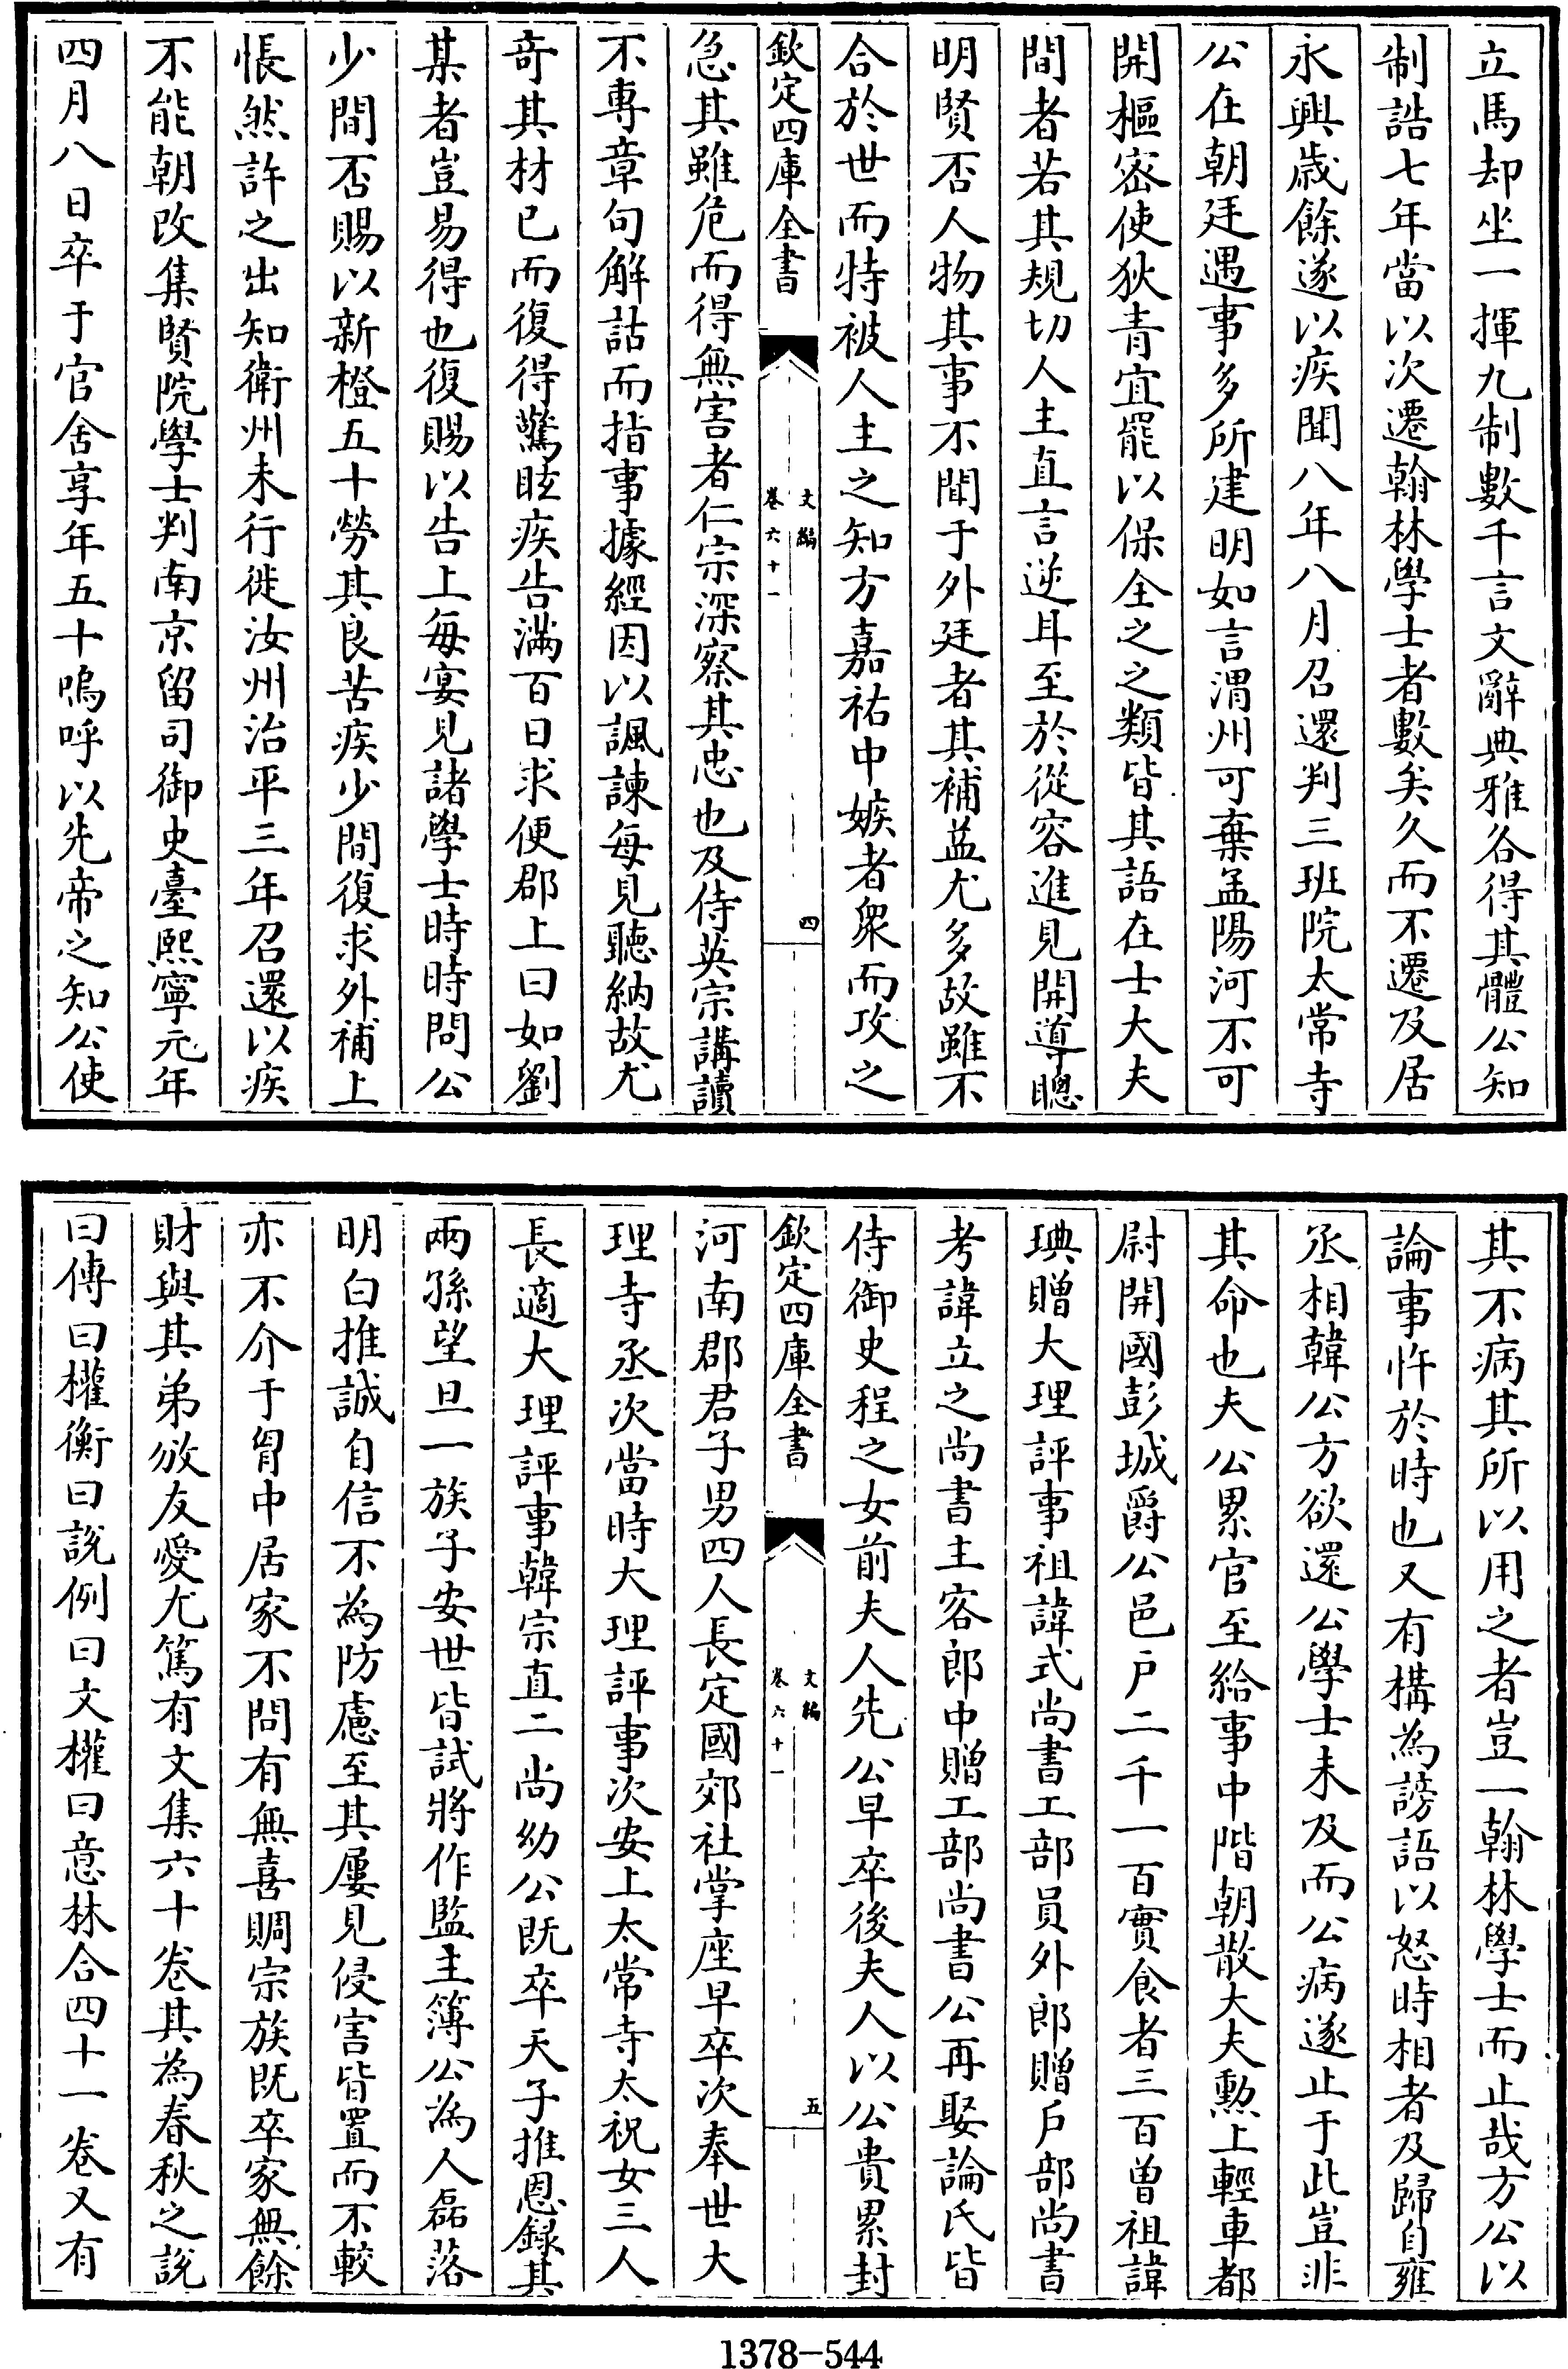 立馬却坐一揮九制數千言文辭典雅各得其體公知
制誥七年當以次遷翰林學士者數矣久而不遷及居
永興歲餘遂以疾聞八年八月召還判三班院太常寺
公在朝廷遇事多所建明如言渭州可棄孟陽河不可
開樞密使狄青宜罷以保全之之類皆其語在士大夫
間者若其規切人主直言逆耳至於從容進見開導聰
明賢否人物其事不聞于外廷者其補益尤多故雖不
合於世而特被人主之知方嘉祐中嫉者衆而攻之
欽定四庫全書
文編
卷六十一
四
急其雖危而得無害者仁宗深察其忠也及侍英宗講讀
不專章句解詁而指事據經因以諷諫每見聽納故尤
奇其材已而復得驚眩疾告滿百日求便郡上曰如劉
某者豈易得也復賜以告上每宴見諸學士時時問公
少間否賜以新橙五十勞其良苦疾少間復求外補上
悵然許之出知衛州未行徙汝州治平三年召還以疾
不能朝改集賢院學士判南京留司御史臺熙寧元年
四月八日卒于官舍享年五十嗚呼以先帝之知公使
其不病其所以用之者豈一翰林學士而止哉方公以
論事忤於時也又有構為謗語以怒時相者及歸自雍
丞相韓公方欲還公學士未及而公病遂止于此豈非
其命也夫公累官至給事中階朝散大夫勲上輕車都
尉開國彭城爵公邑戶二千一百實食者三百曾祖諱
琠贈大理評事祖諱式尚書工部員外郎贈戶部尚書
考諱立之尚書主客郎中贈工部尚書公再娶論氏皆
侍御史程之女前夫人先公早卒後夫人以公貴累封
欽定四庫全書
文編
卷六十一
五
河南郡君子男四人長定國郊社掌座早卒次奉世大
理寺丞次當時大理評事次安上太常寺太祝女三人
長適大理評事韓宗直二尚幼公既卒天子推恩錄其
兩孫望旦一族子安世皆試將作監主簿公為人磊落
明白推誠自信不為防慮至其屢見侵害皆置而不較
亦不介于胷中居家不問有無喜賙宗族既卒家無餘
財與其弟攽友愛尤篤有文集六十卷其為春秋之說
曰傳曰權衡曰說例曰文權曰意林合四十一卷又有
1378-544